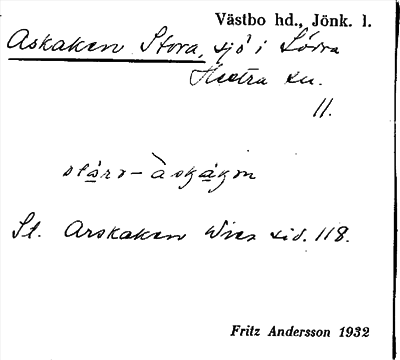 Västbo hd., Jönk. l.
Askaken Stora, sjö i Södra
Hestra sn.
11.
stårs-àskågən
St. Arskaken Wies sid. 118.
Fritz Andersson 1932